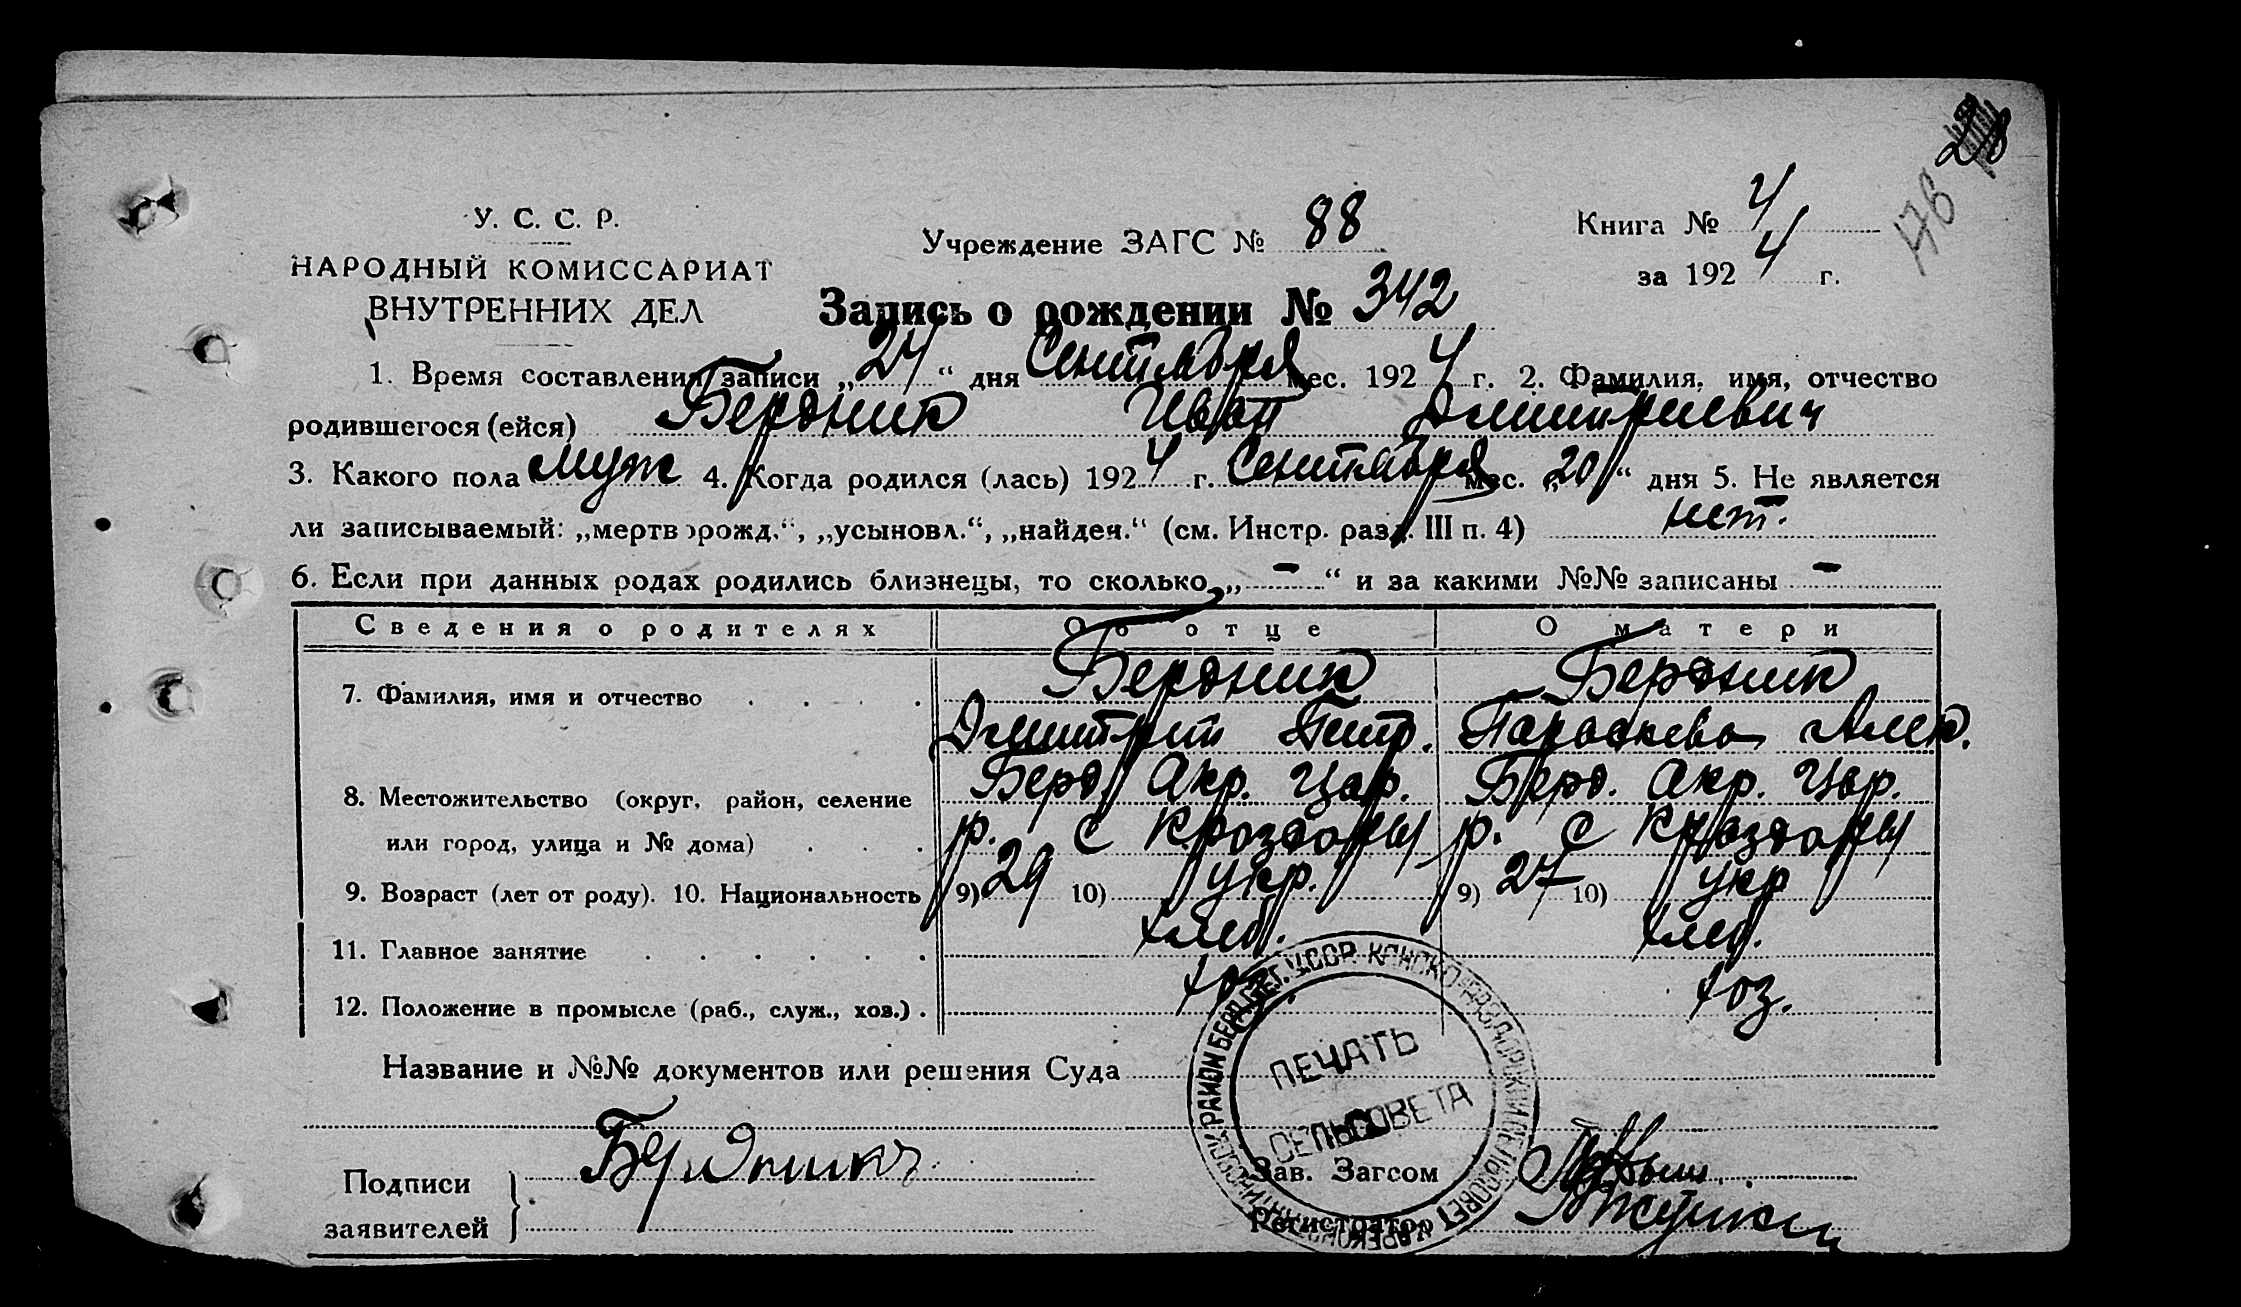 28
176
У. С. С. Р.
НАРОДНЫЙ КОМИССАРИАТ
ВНУТРЕННИХ ДЕЛ
Учреждение ЗАГС № 88
Книга № 4
за 1924 г.
Запись о рождении № 342
1. Время составления записи „24“ дня Сентября мес. 1924 г. 2. Фамилия, имя, отчество
родившегося (ейся) Бердник Иван Дмитриевич
3. Какого пола муж 4. Когда родился (лась) 1924 г. Сентября мес. „20“ дня 5. Не является
ли записываемый: „мертворожд.“, „усыновл.“, „найден.“ (см. Инстр. разд. III п. 4) нет.
6. Если при данных родах родились близнецы, то сколько „-“ и за какими №№ записаны -
Сведения о родителях Об отце О матери
7. Фамилия, имя и отчество Бердник Бердник
Дмитрий Питр. Параскева Алек.
8. Местожительство (округ, район, селение Берд. Акр. Цар. Берд. Акр. Цар.
или город, улица и № дома) р. с Кроздоры р. с Кроздоры
9. Возраст (лет от роду). 10. Национальность 9) 29 10) укр. 9) 27 10) укр
11. Главное занятие хлеб. хлеб.
12. Положение в промысле (раб., служ., хоз.) хоз. хоз.
Название и №№ документов или решения Суда
ПЕЧАТЬ
СЕЛЬСОВЕТА
Подписи
заявителей
Зав. Загсом
Регистратор